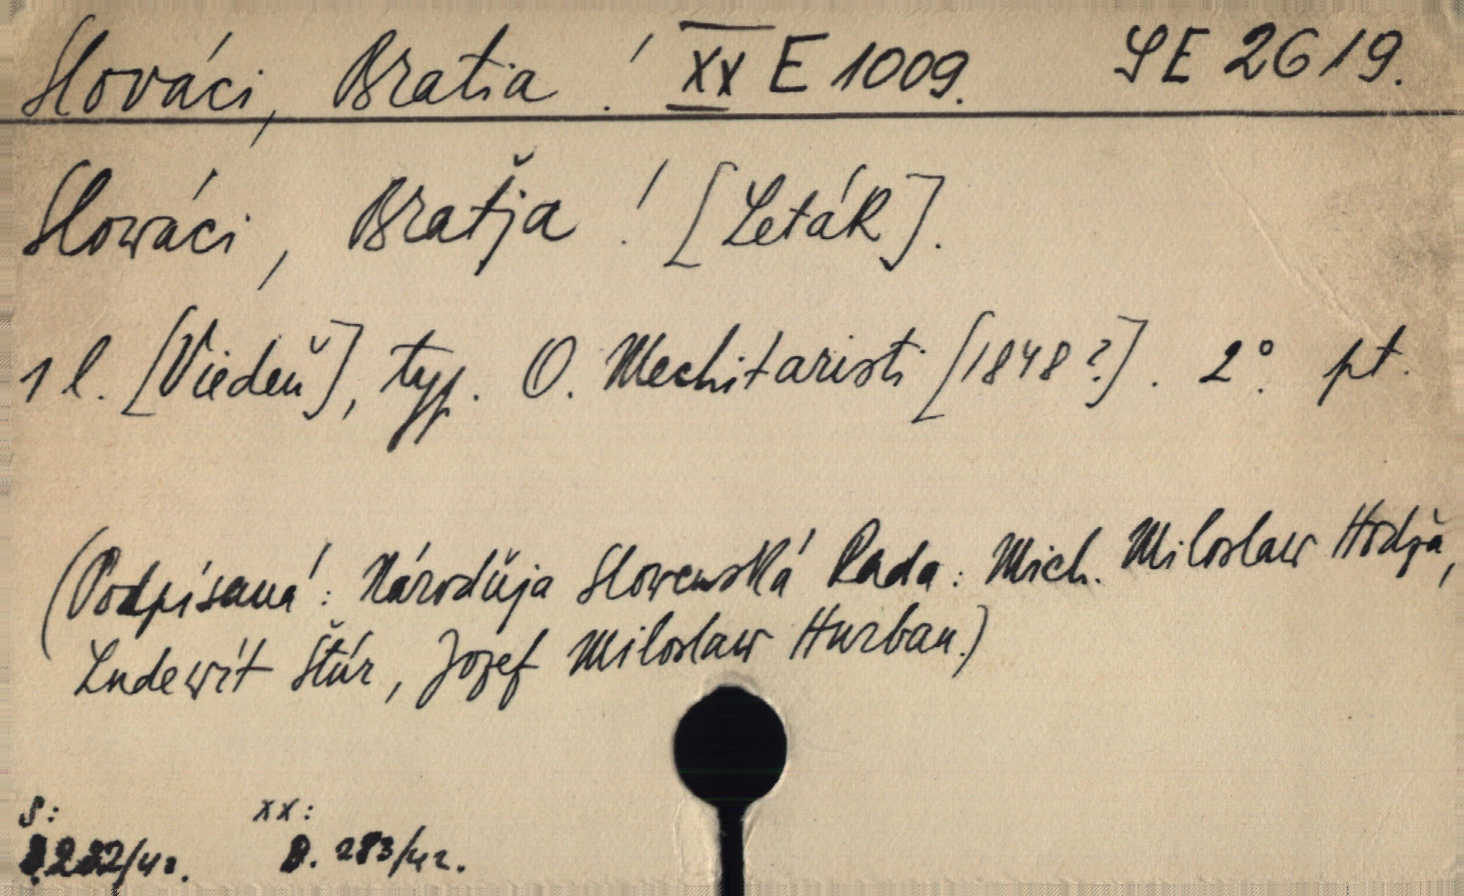 Slováci, Bratia ! XX E 1009. SE 2619.
Slowáci, Bratťja ! [Leták].
1 l. [Viedeň], typ. O. Mechitaristi [1848?]. 2°. pt.
(Podpísaná: Národňja Slowenská Rada: Mich. Miloslaw Hodža,
Ludewít Štúr, Jozef Miloslaw Hurban.)
S: XX:
D. 283/42.